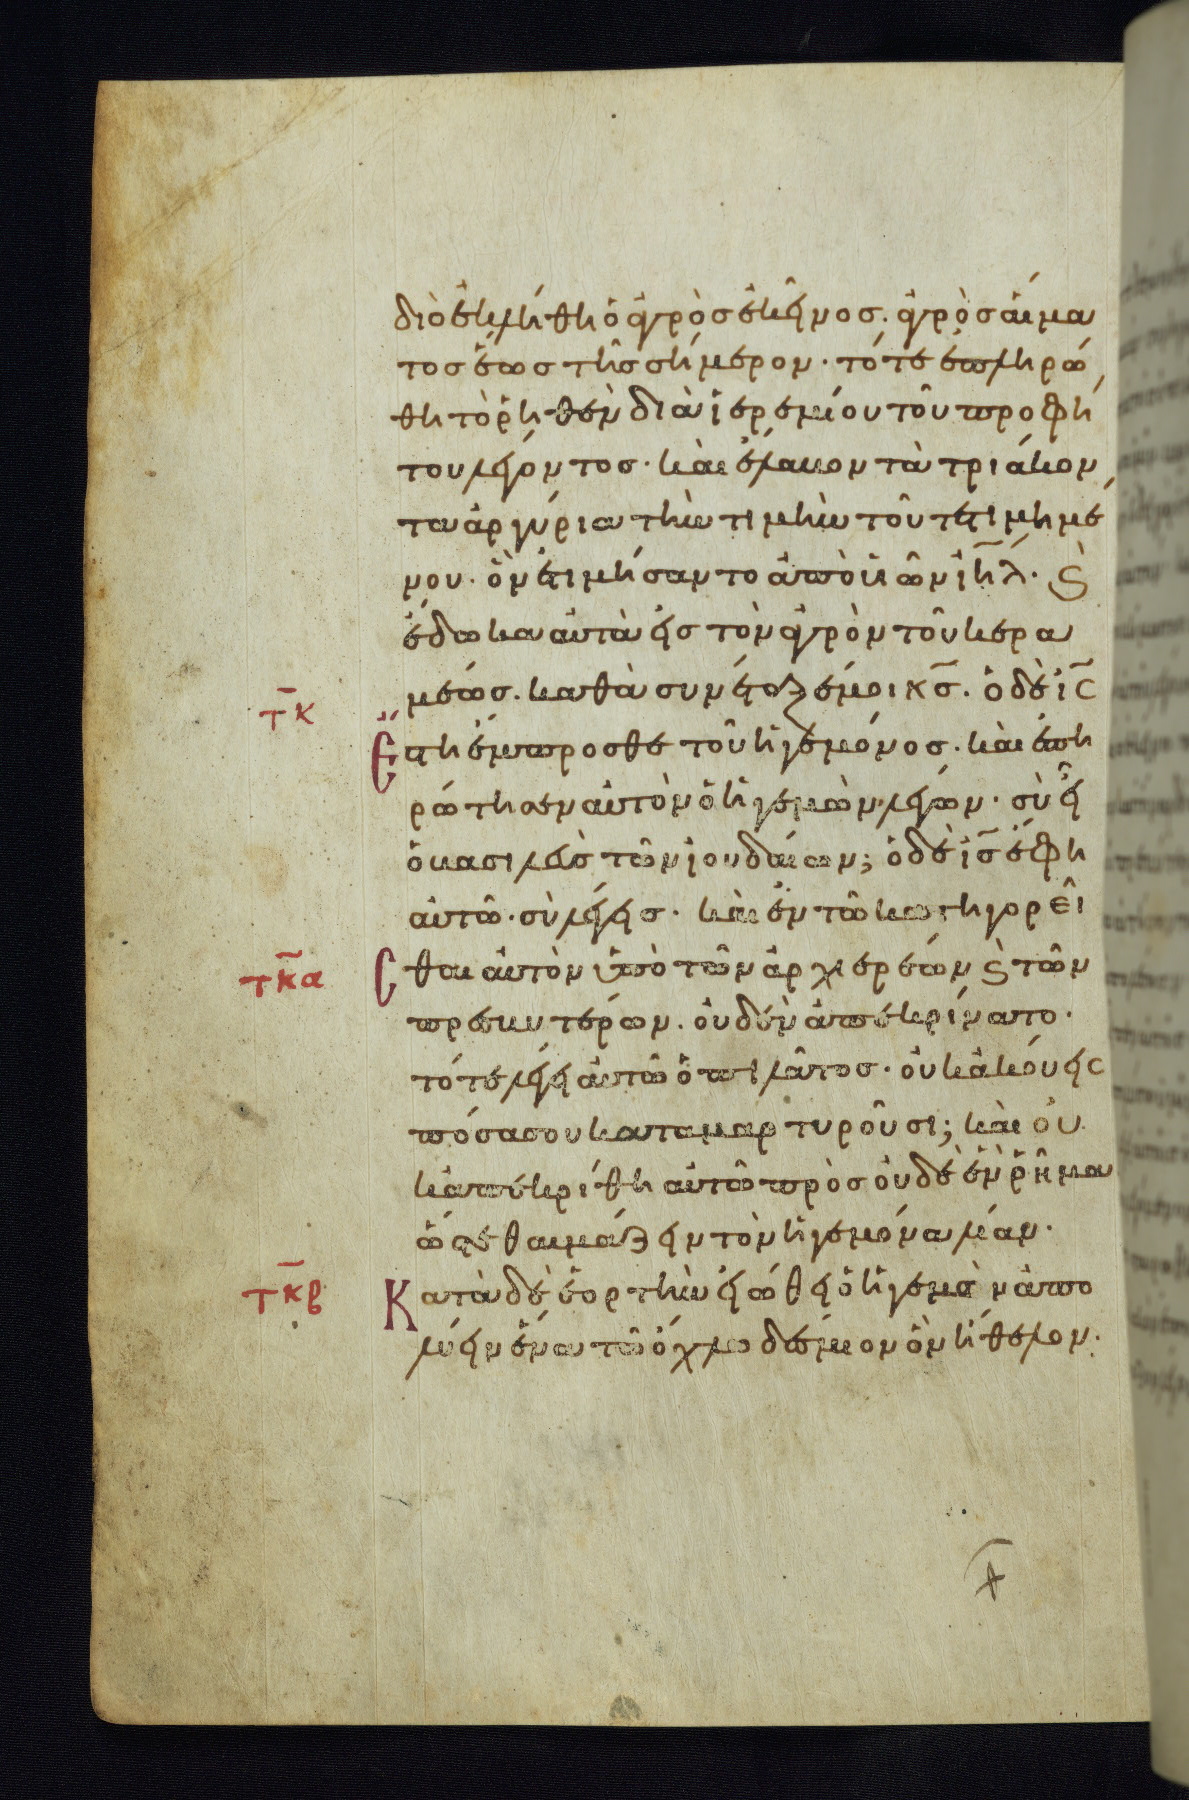 διὸ ἐκλήθη ὁ ἀγρὸς ἐκεῖνος. ἀγρὸς αἵμα
τος ἕως τῆς σήμερον. τότε ἐπληρώ
θη τὸ ῥηθὲν διὰ ἱερεμίου τοῦ προφή
του λέγοντος. καὶ ἔλαβον τὰ τριάκον
τα ἀργύρια τὴν τιμὴν τοῦ τετιμημέ
νου. ὃν ἐτιμήσαντο ἀπὸ υἱῶν ἰη̅λ. ϛ
ἔδωκαν αὐτὰ εἰς τὸν ἀγρὸν τοῦ κερα
τ̅κ μέως. καθὰ συνέταξέ μοι κ̅ς. ὁ δὲ ἰ̅ς
Ἔστη ἔμπροσθε τοῦ ἡγεμόνος. καὶ ἐπη
ρώτησεν αὐτὸν ὁ ἡγεμὼν λέγων. σὺ εἶ
ὁ βασιλεὺς τῶν ἰουδαίων; ὁ δὲ ἰ̅ς ἔφη
αὐτῶ. σὺ λέγεις. καὶ ἐν τῶ κατηγορεῖ
τ̅κ̅α Σθαι αὐτὸν ὑπὸ τῶν ἀρχιερέων ϛ τῶν
πρεσβυτέρων. οὐδὲν ἀπεκρίνατο.
τότε λέγει αὐτῶ ὁ πιλᾶτος. οὐκ ἀκούεις
πόσα σου καταμαρτυροῦσι; καὶ οὐ
κ ἀπεκρίθη αὐτῶ πρὸς οὐδὲ ἓν ῥῆμα
ὥστε θαυμάζειν τὸν ἡγεμόνα λίαν.
τ̅κ̅β Κατὰ δὲ ἑορτὴν εἰώθει ὁ ἡγεμὼν ἀπο
λύειν ἕνα τῶ ὄχλω δέσμιον ὃν ἤθελον.